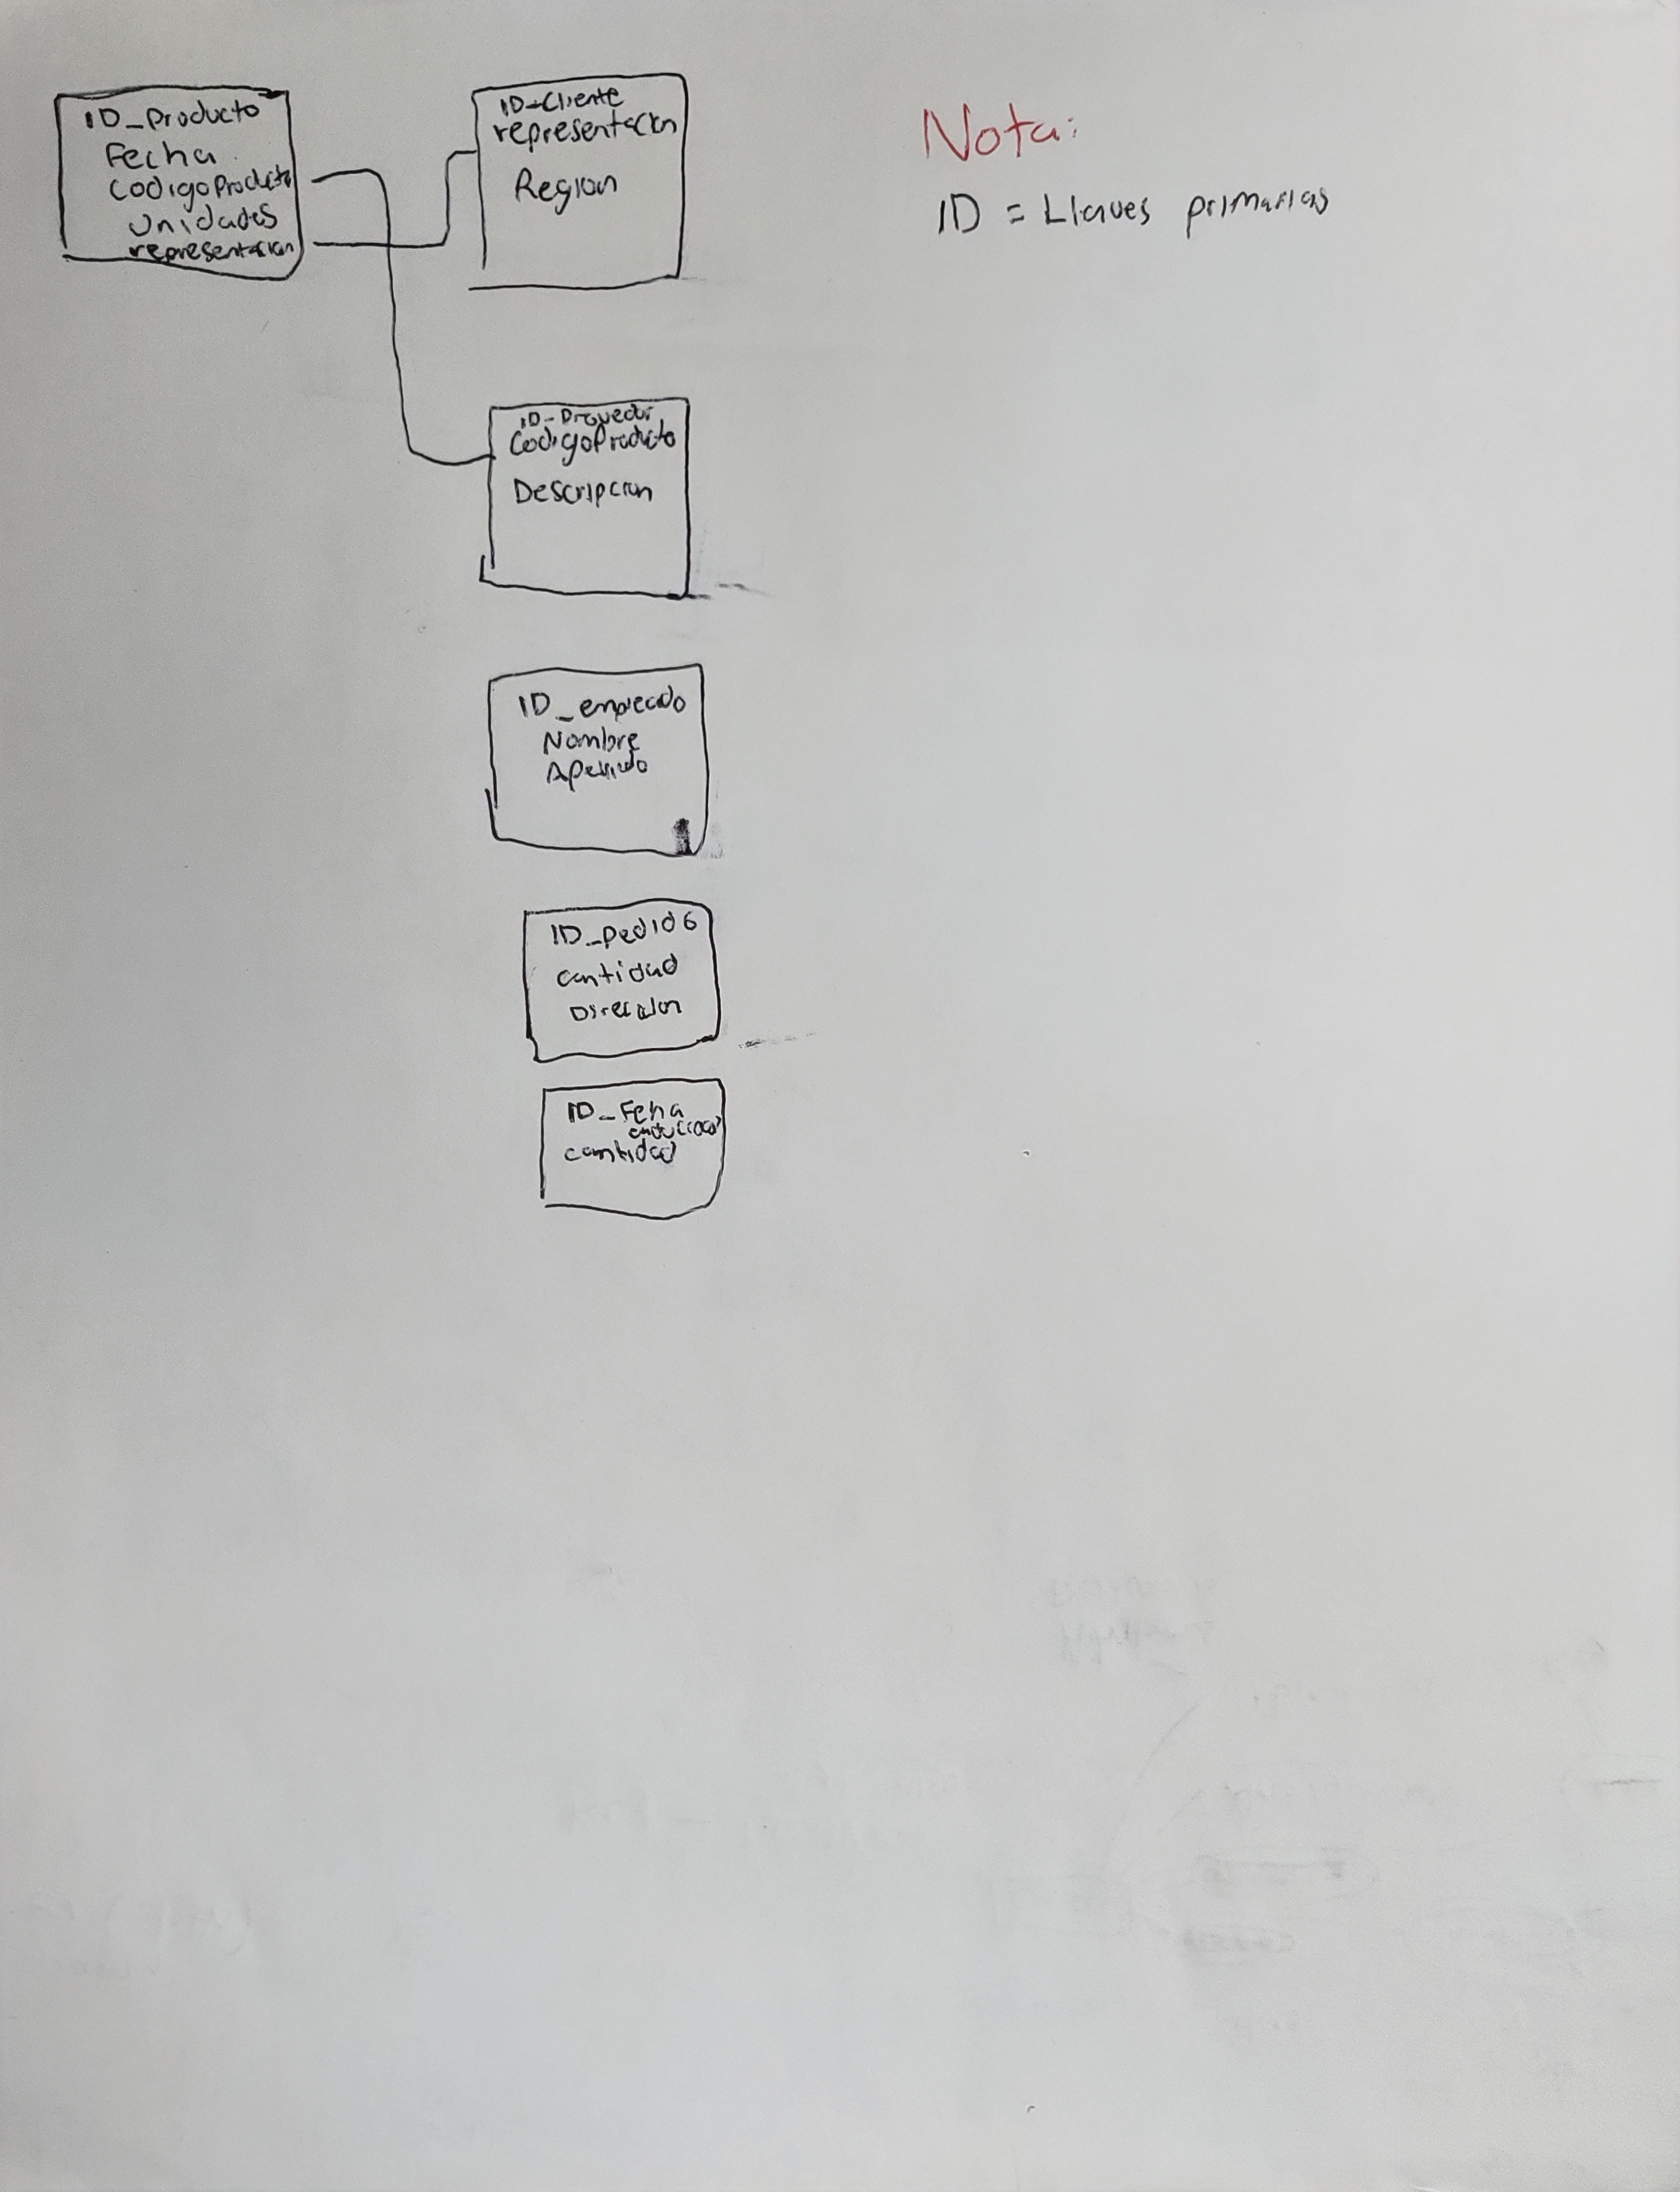 ID_Producto
Fecha
CodigoProducto
Unidades
representacion
ID-Cliente
representacion
Region
Nota:
ID = Llaves primarias
ID-Provedor
CodigoProducto
Descripcion
ID_empleado
Nombre
Apellido
ID_pedido
cantidad
Direccion
ID_Feha
cantidad